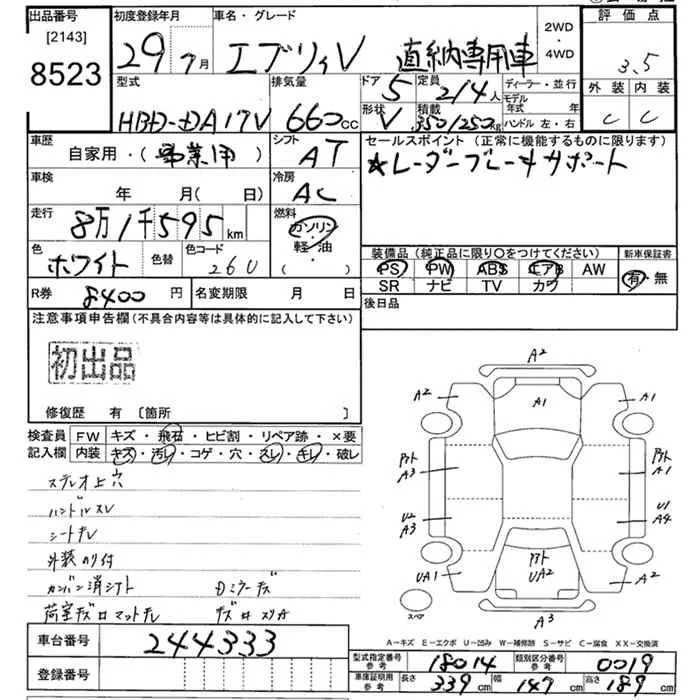 出品番号
[2143]
8523
初度登録年月
29年7月
車名・グレード
エブリイV 直納専用車
2WD
・
4WD
評価点
3.5
外装 内装
C C
型式
HBD-DA17V
排気量
660cc
ドア
5
定員
2/4人
形状
V
積載
350/250kg
ディーラー・並行
モデル年式 年
ハンドル 左・右
車歴
自家用・(事業用)
シフト
AT
セールスポイント(正常に機能するものに限ります)
☆レーダーブレーキサポート
車検
年 月(日)
冷房
AC
走行
8万1千595km
燃料
ガソリン
軽・油
( )
色
ホワイト
色替
色コード
26U
装備品(純正品に限り○をつけてください)
PS PW ABS エアB AW
SR ナビ TV カワ
新車保証書
有・無
R券 8400円
名変期限 月 日
後日品
注意事項申告欄(不具合内容等は具体的に記入して下さい)
初出品
修復歴 有 〔箇所 〕
検査員記入欄
FW キズ・飛石・ヒビ割・リペア跡・×要
内装 キズ・汚レ・コゲ・穴・スレ・キレ・破レ
ステレオ上穴
ハンドルスレ
シートキレ
外装のり付
カンバン消シアト
Dミラーキズ
荷室キズロマットキレ
A2
A2
A1
A1
A3
A1
U2
A3
U1
A4
UA1
UA2
A2
スペア
A3
A-キズ E-エクボ U-凹み W-補修跡 S-サビ C-腐食 XX-交換済
車台番号
244333
登録番号
型式指定番号 参考
18014
類別区分番号 参考
0019
車庫証明用 参考
長さ 339cm 幅 147cm 高さ 189cm